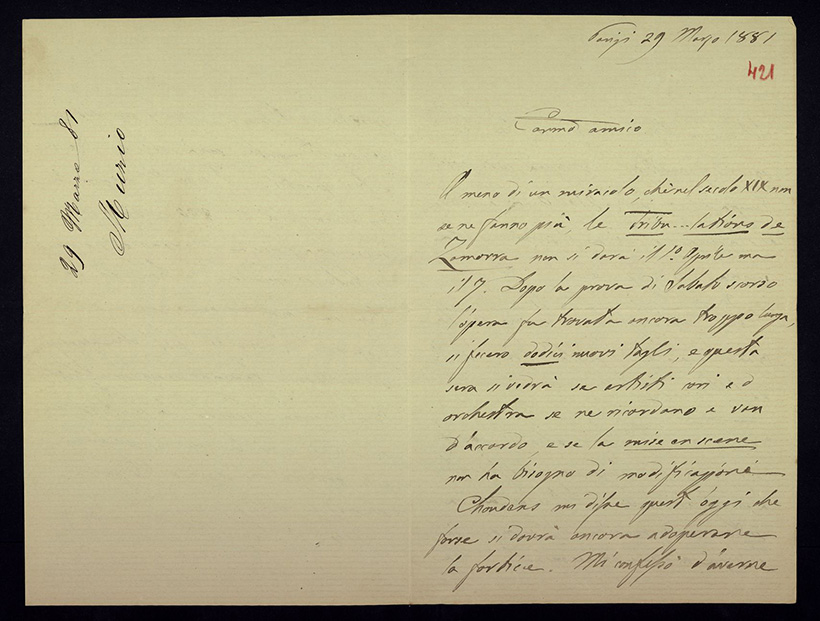 29 Marzo 81
Muzio
Parigi 29 Marzo 1881
421
Carmo amico
A meno di un miracolo, chè nel secolo XIX non
se ne fanno più, le Tribu...lations de
Zamorra non si darà il 1º Aprile ma
il 7. Dopo la prova di Sabato scorso
l'opera fu trovata ancora troppo lunga,
si fecero dodici nuovi tagli, e questa
sera si vedrà se artisti cori ed
orchestra se ne ricordano e van
d'accordo, e se la mise en scene
non ha bisogno di modificazioni
Choudens mi disse quest'oggi che
forse si dovrà ancora adoperare
la forbice. Mi confessò d'averne